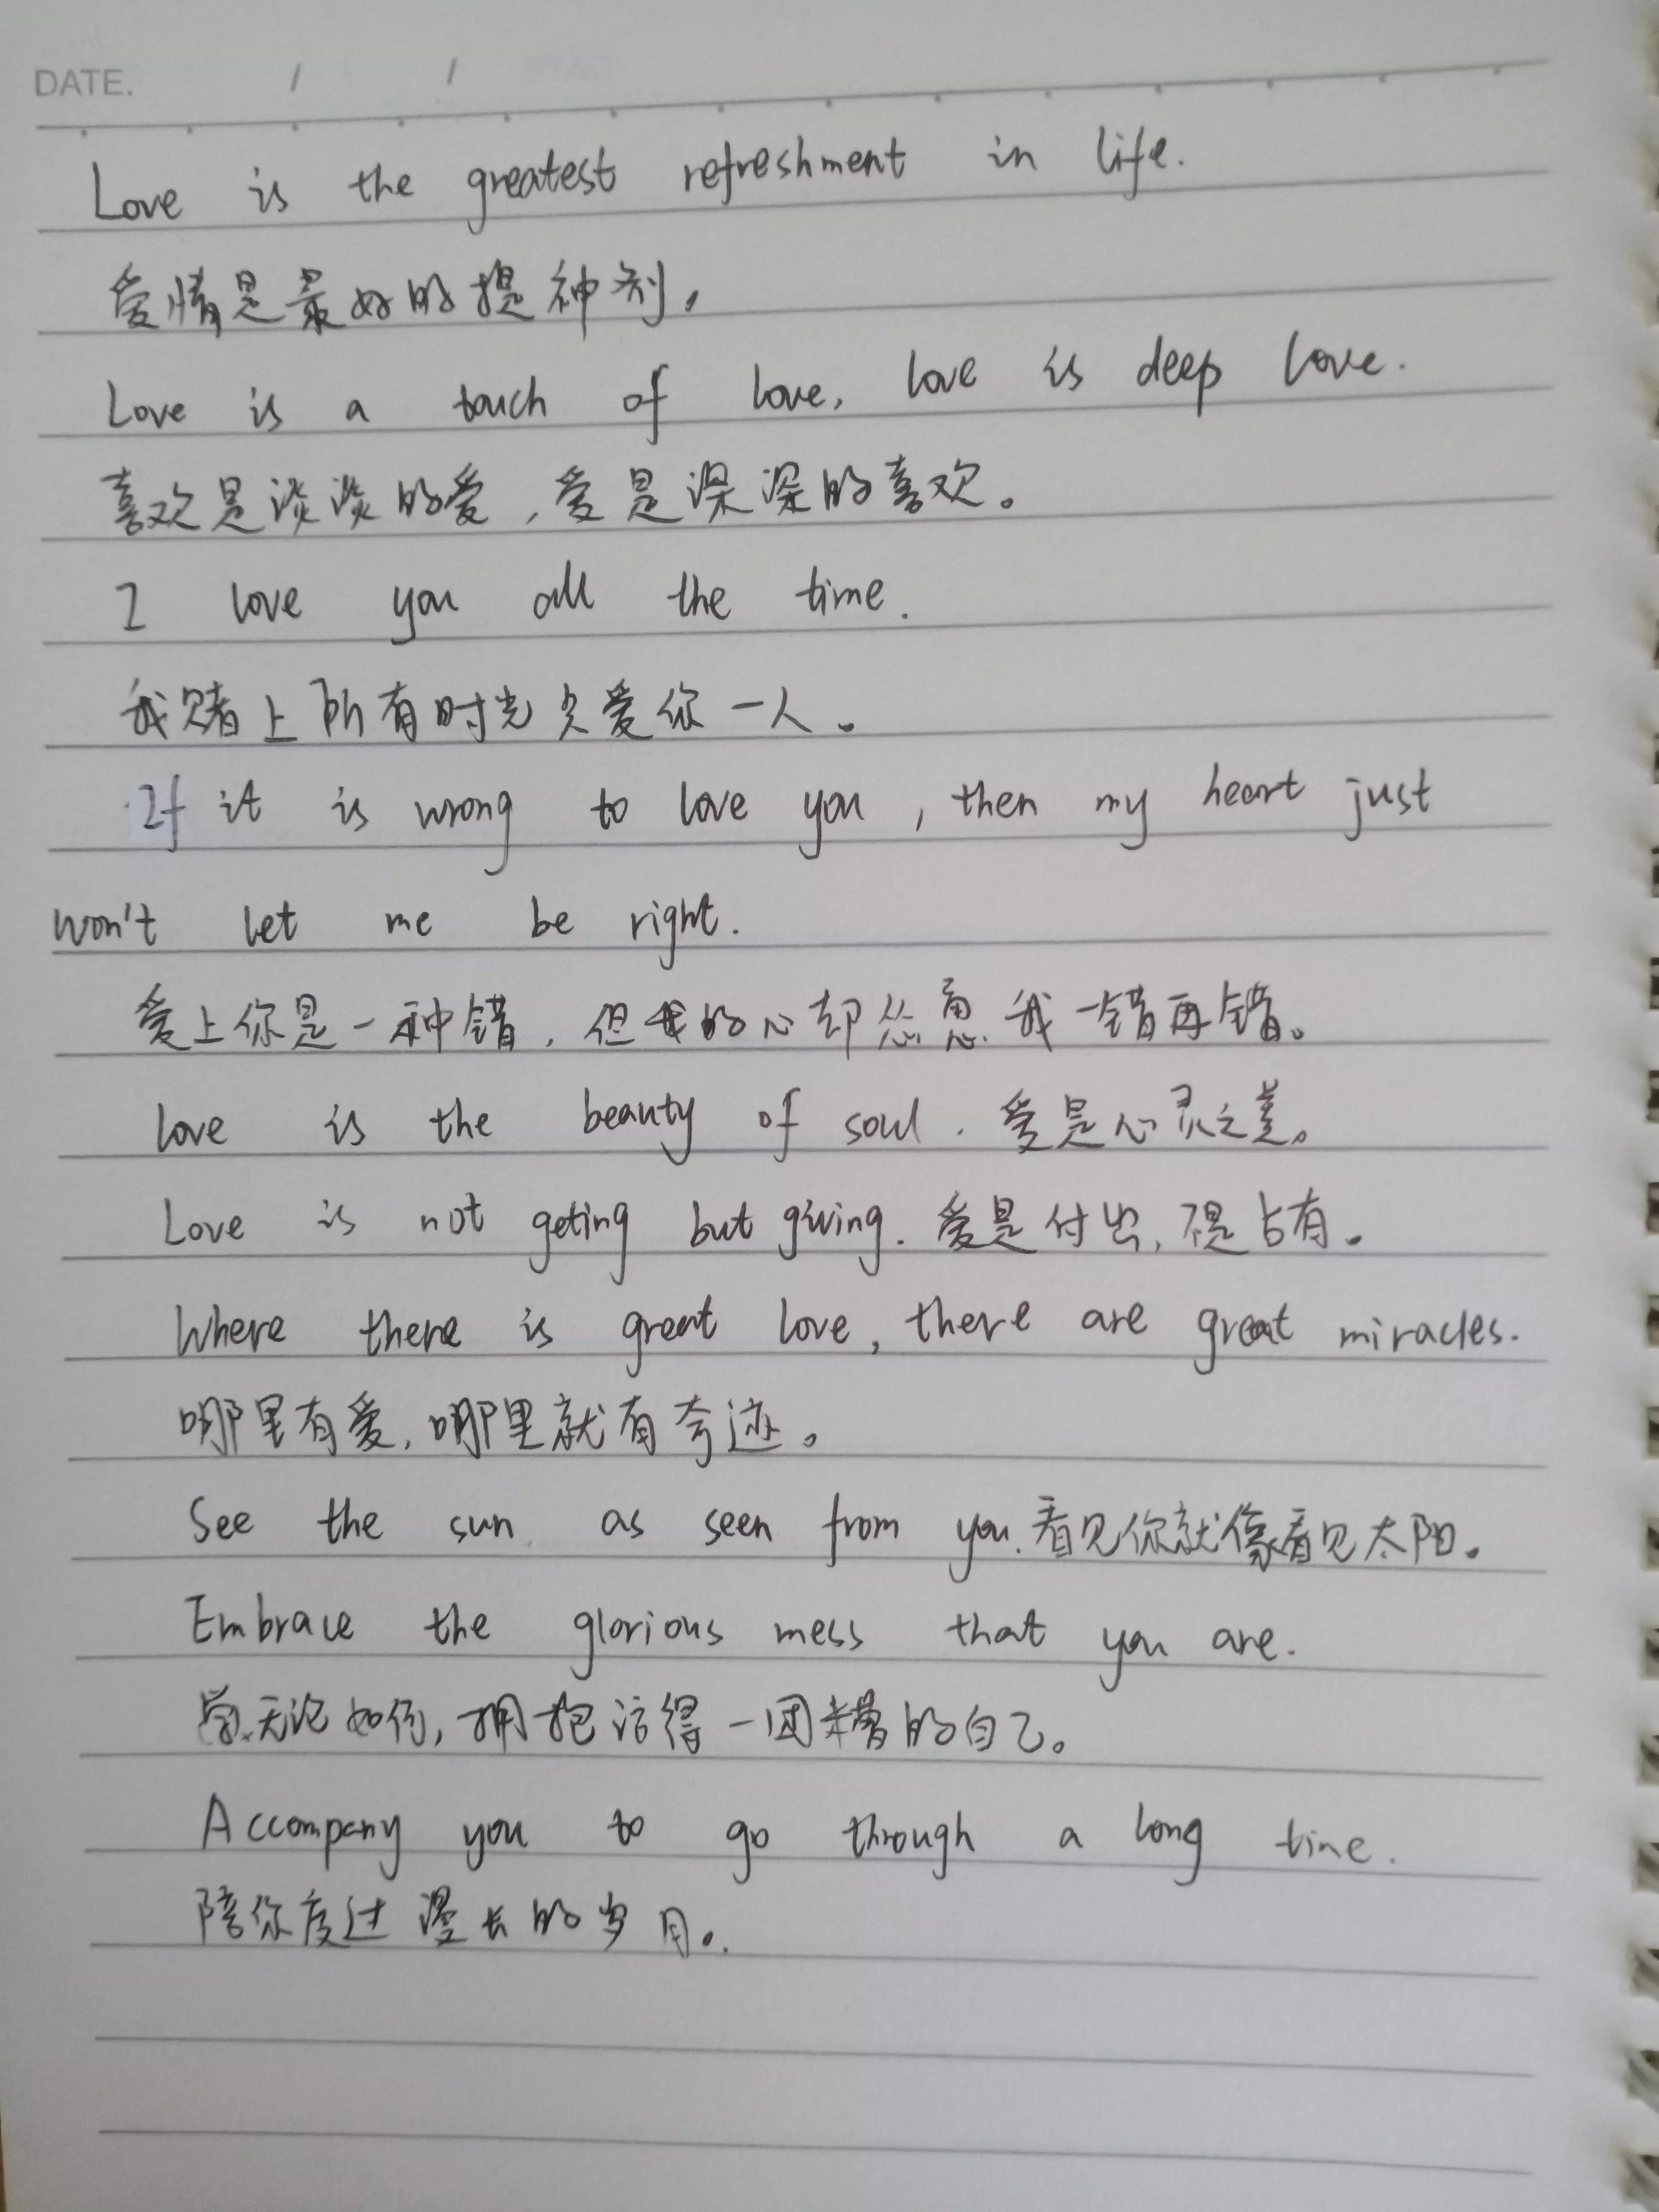 DATE. / /
Love is the greatest refreshment in life.
爱情是最好的提神剂,
Love is a touch of love, love is deep love.
喜欢是淡淡的爱,爱是深深的喜欢。
I love you all the time.
我赌上所有时光只爱你一人。
If it is wrong to love you, then my heart just
won't let me be right.
爱上你是一种错,但我的心却怂恿我一错再错。
Love is the beauty of soul. 爱是心灵之美。
Love is not geting but giving. 爱是付出,不是占有。
Where there is great love, there are great miracles.
哪里有爱,哪里就有奇迹。
See the sun as seen from you. 看见你就像看见太阳。
Embrace the glorious mess that you are.
无论如何,拥抱活得一团糟的自己。
Accompany you to go through a long time.
陪你度过漫长的岁月。